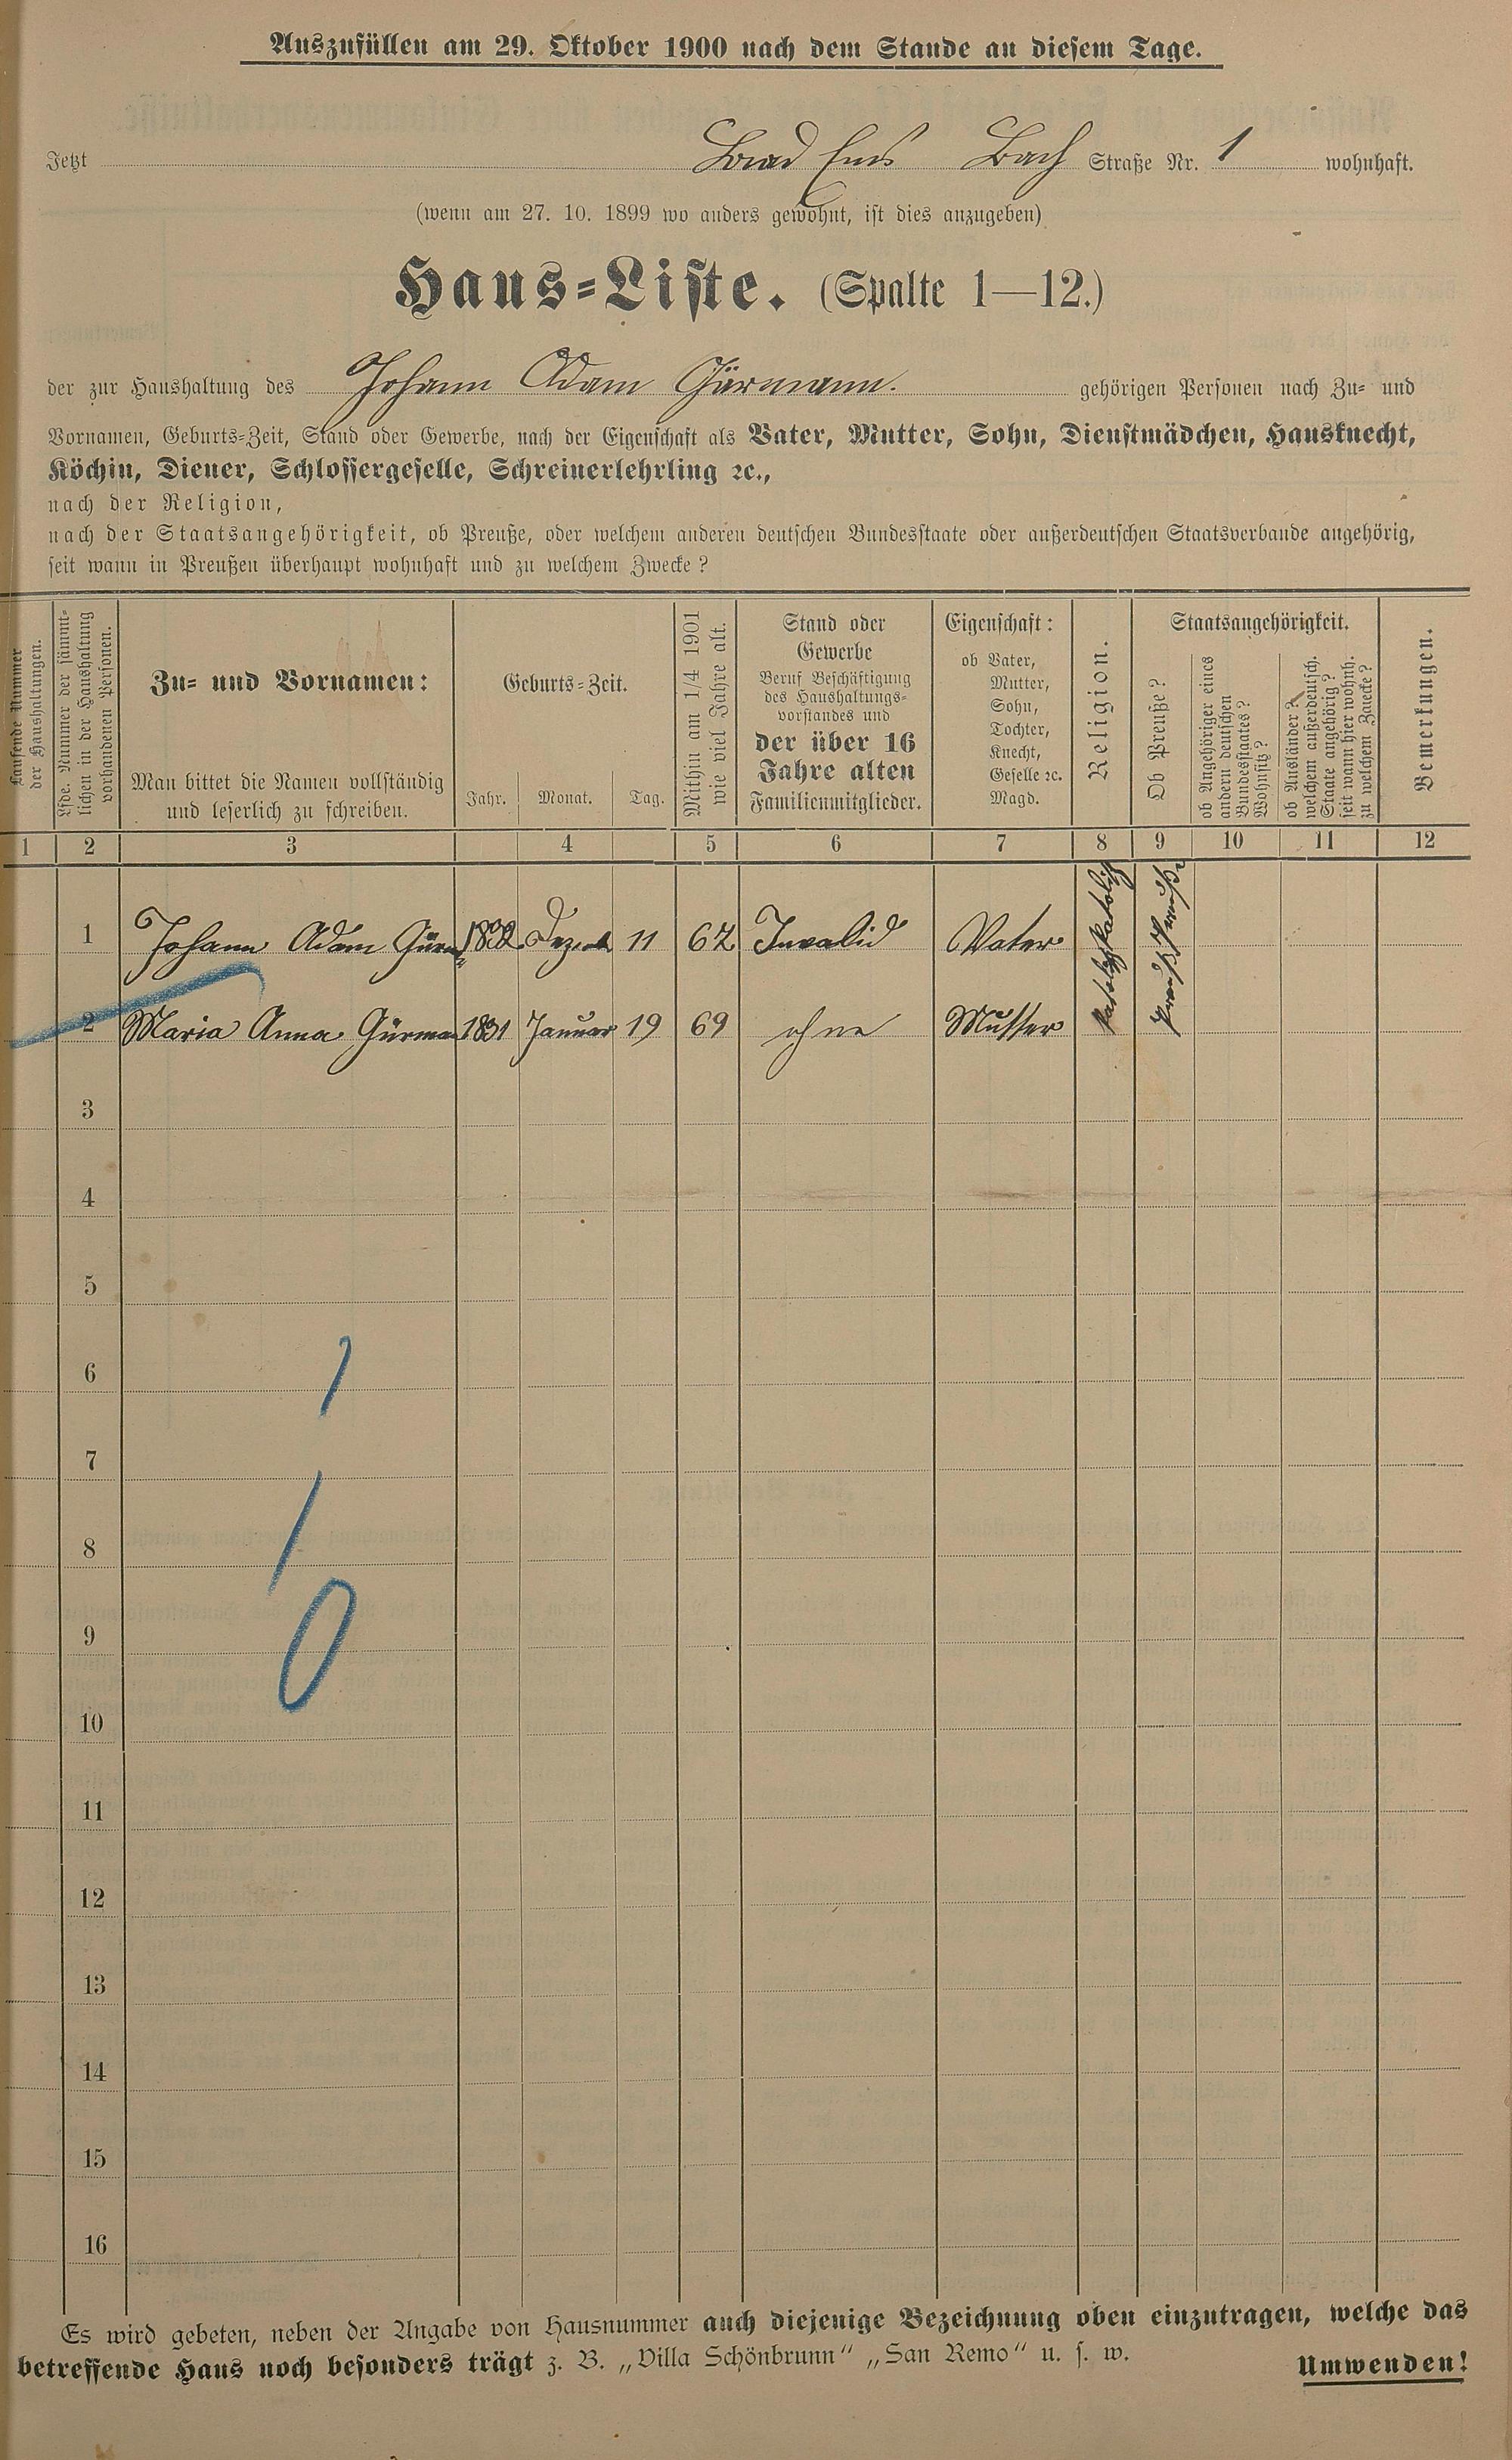 Auszufüllen am 29. Oktober 1900 nach dem Stande an diesem Tage.
Jetzt Bad Ems Bach Straße Nr. 1 wohnhaft.
(wenn am 27. 10. 1899 wo anders gewohnt, ist dies anzugeben)
Haus-Liste. (Spalte 1—12.)
der zur Haushaltung des Johann Adam Gürmann. gehörigen Personen nach Zu- und
Vornamen, Geburts-Zeit, Stand oder Gewerbe, nach der Eigenschaft als Vater, Mutter, Sohn, Dienstmädchen, Hausknecht,
Köchin, Diener, Schlossergeselle, Schreinerlehrling ꝛc.,
nach der Religion,
nach der Staatsangehörigkeit, ob Preuße, oder welchem anderen deutschen Bundesstaate oder außerdeutschen Staatsverbande angehörig,
seit wann in Preußen überhaupt wohnhaft und zu welchem Zwecke?
Laufende Nummer
der Haushaltungen.
Lfde. Nummer der sämmt-
lichen in der Haushaltung
vorhandenen Personen.
Zu- und Vornamen:
Man bittet die Namen vollständig
und leserlich zu schreiben.
Geburts-Zeit.
Jahr. Monat. Tag.
Mithin am 1/4 1901
wie viel Jahre alt.
Stand oder
Gewerbe
Beruf Beschäftigung
des Haushaltungs-
vorstandes und
der über 16
Jahre alten
Familienmitglieder.
Eigenschaft:
ob Vater,
Mutter,
Sohn,
Tochter,
Knecht,
Geselle ꝛc.
Magd.
Religion.
Staatsangehörigkeit.
Ob Preuße?
ob Angehöriger eines
andern deutschen
Bundesstaates?
Wohnsitz?
ob Ausländer?
welchem außerdeutsch.
Staate angehörig?
seit wann hier wohnh.
zu welchem Zwecke?
Bemerkungen.
1 2 3 4 5 6 7 8 9 10 11 12
1 Johann Adam 11 67 Invalid Vater Preuße
2 Maria Anna Gürman 1831 Januar 19 69 ohne Mutter Preuße
3
4
5
6
7
8
9
10
11
12
13
14
15
16
1
0
Es wird gebeten, neben der Angabe von Hausnummer auch diejenige Bezeichnung oben einzutragen, welche das
betreffende Haus noch besonders trägt z. B. „Villa Schönbrunn“ „San Remo“ u. s. w.
Umwenden!